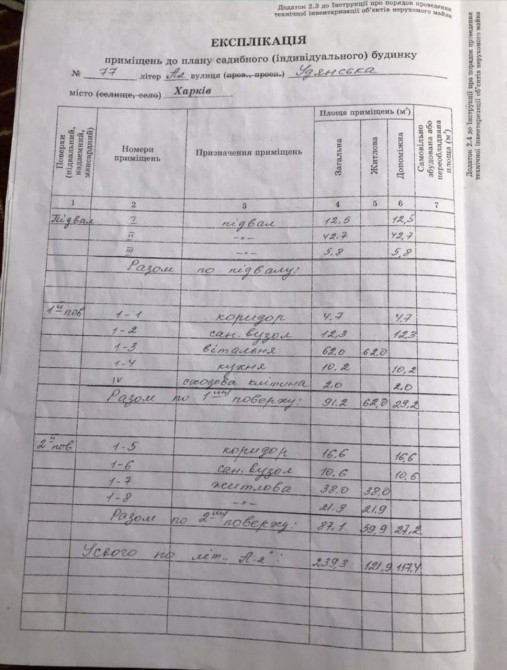 Додаток 2.3 до Інструкції про порядок проведення
технічної інвентаризації об'єктів нерухомого майна
Додаток 2.4 до Інструкції про порядок проведення
технічної інвентаризації об'єктів нерухомого майна
ЕКСПЛІКАЦІЯ
приміщень до плану садибного (індивідуального) будинку
№ 77 літер А2 вулиця (пров., просп.) Удянська
місто (селище, село) Харків
Поверхи (підвальний, надземний, мансардний) Номери приміщень Призначення приміщень Площа приміщень (м²) Загальна Житлова Допоміжна Самовільно збудована або переобладнана площа (м²)
1 2 3 4 5 6 7
Підвал I підвал 12,5 12,5
II -"- 42,7 42,7
III -"- 5,8 5,8
Разом по підвалу:
1й пов 1-1 коридор 4.7 4.7
1-2 сан. вузол 12,3 12,3
1-3 вітальня 62,0 62,0
1-4 кухня 10,2 10,2
IV сходова клітина 2.0 2.0
Разом по 1му поверху: 91.2 62,0 29,2
2й пов 1-5 коридор 16,6 16,6
1-6 сан. вузол 10.6 10,6
1-7 житлова 38,0 38,0
1-8 -"- 21.9 21.9
Разом по 2му поверху: 87,1 59,9 27,2
Усього по літ. "А-2": 239,3 121,9 117,4